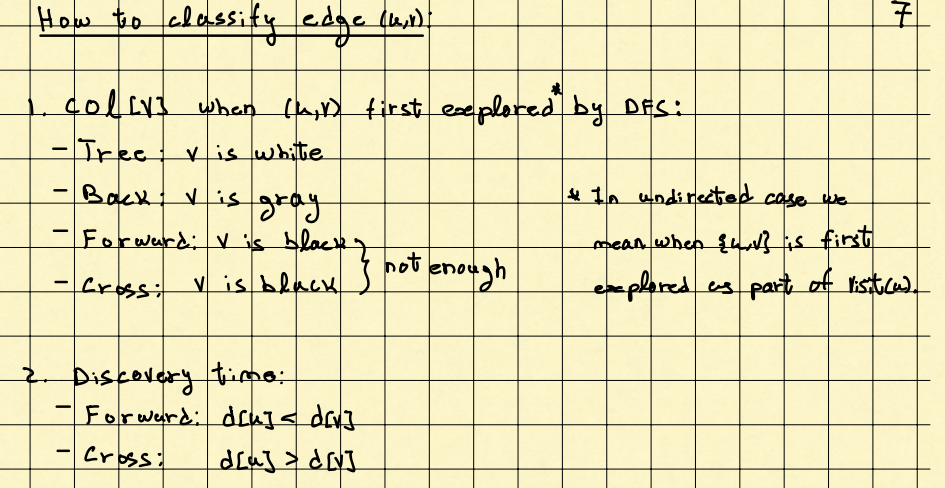 How to classify edge (u,v): 7
1. COl[V] when (u,v) first explored* by DFS:
- Tree: v is white
- Back: v is gray
- Forward: v is black
- Cross: v is black } not enough
* In undirected case we
mean when {u,v} is first
explored as part of Visit(u).
2. Discovery time:
- Forward: d[u] < d[v]
- Cross: d[u] > d[v]